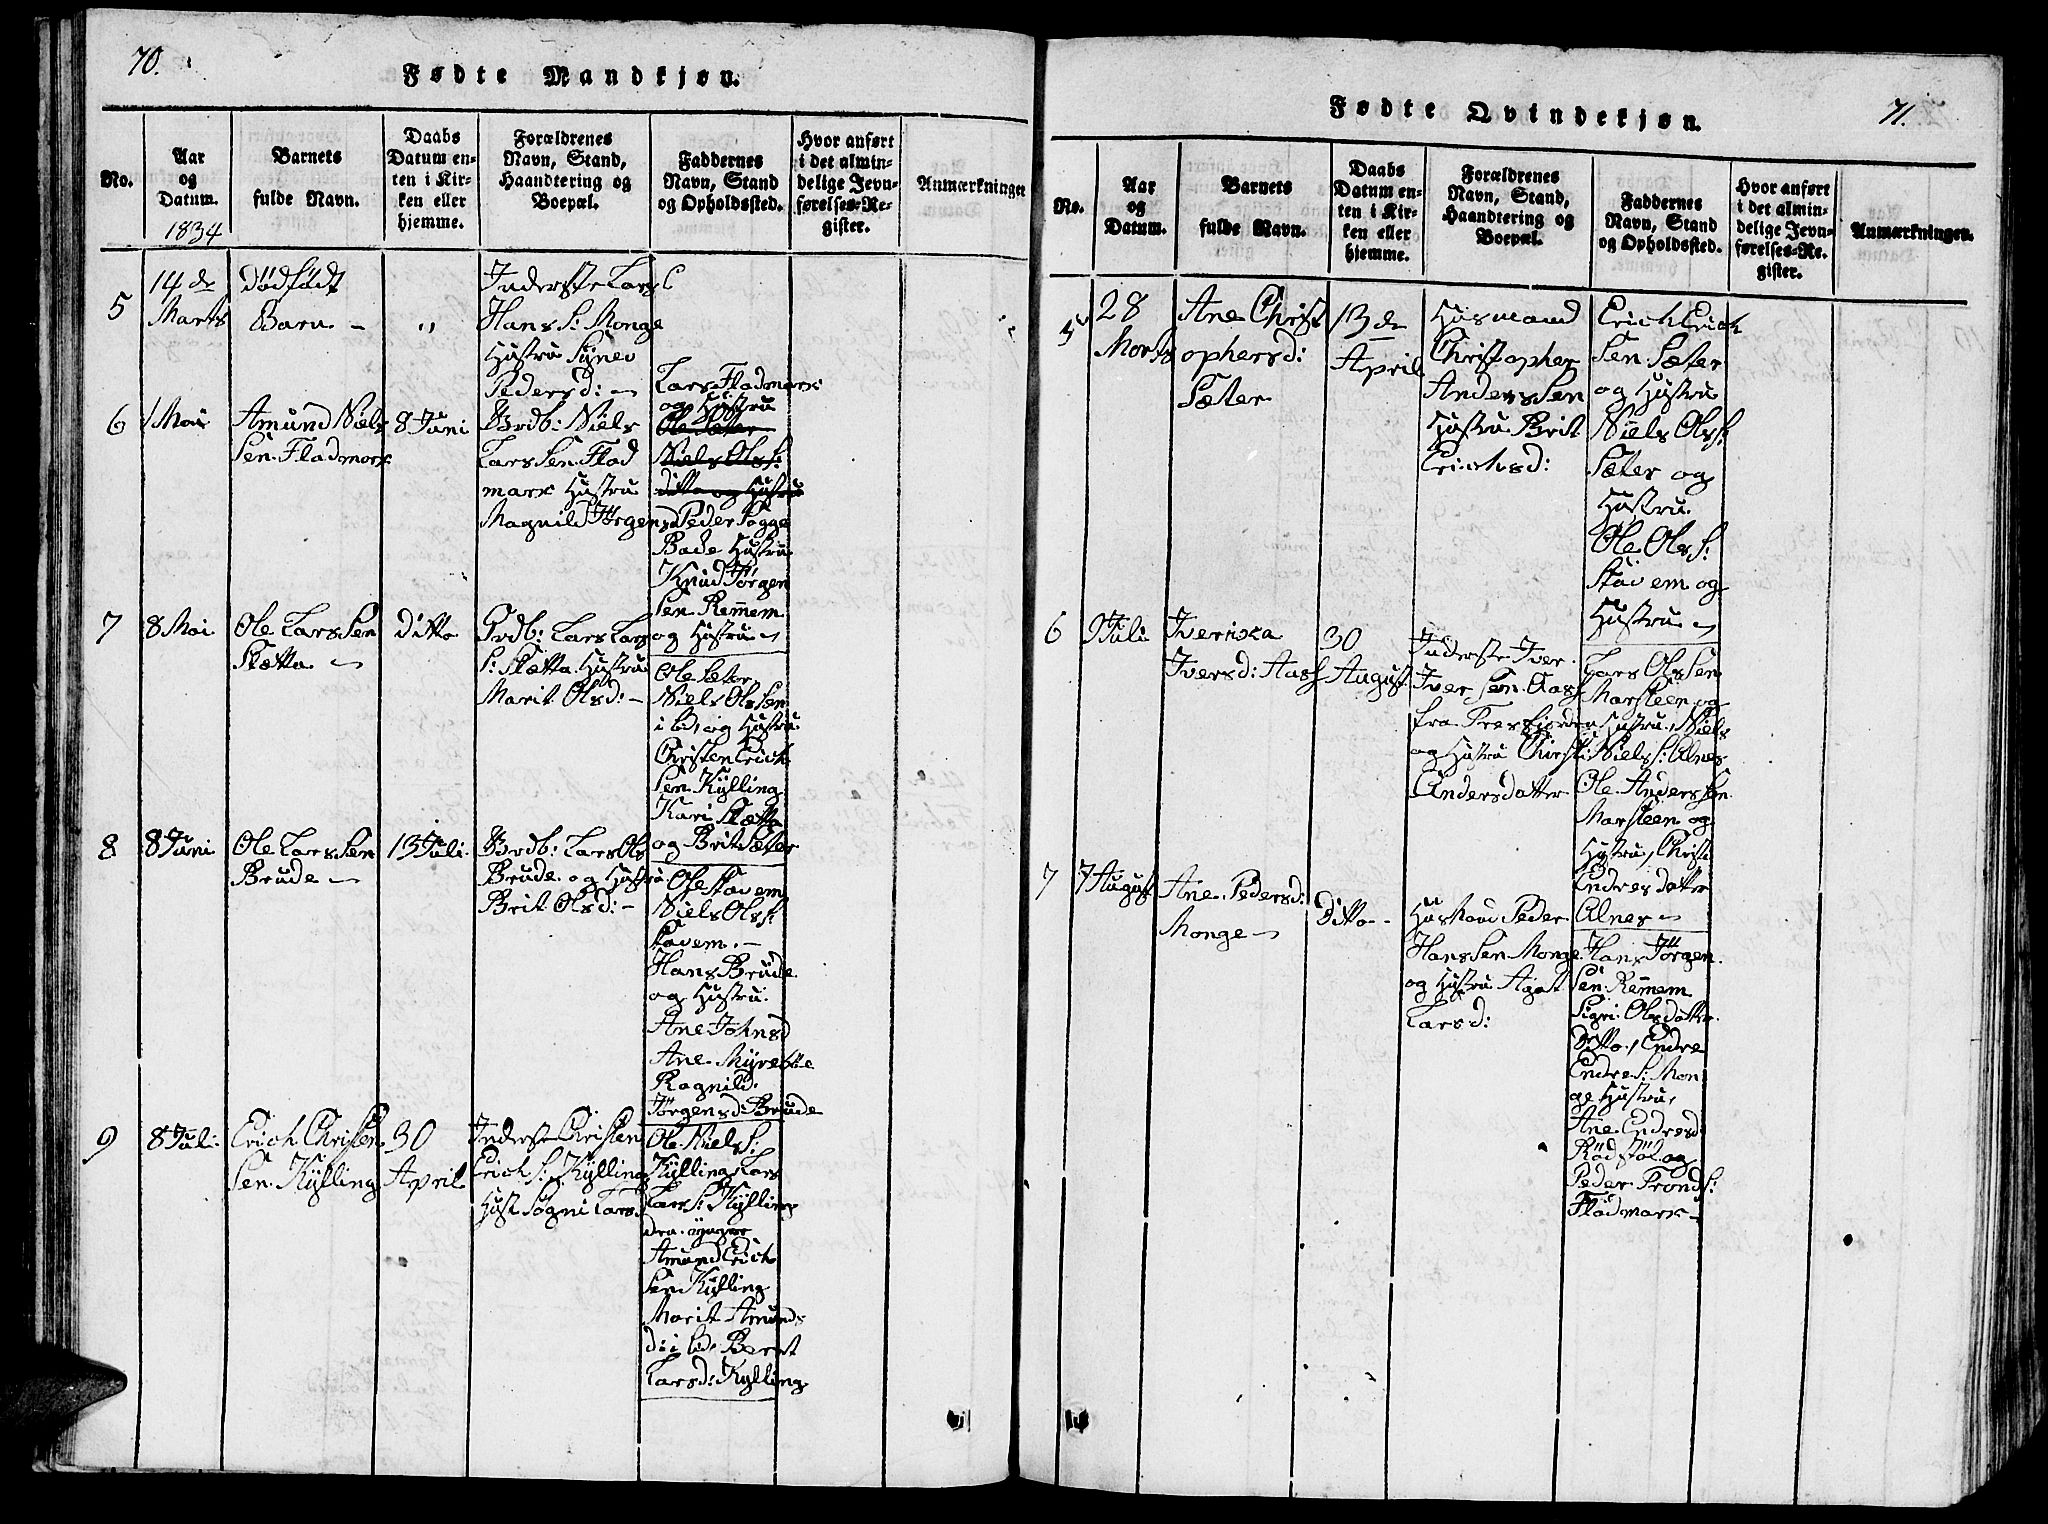 70.
Fødte Mandkjøn.
No.
Aar
og
Datum.
1834
Barnets
fulde Navn.
Daabs
Datum en-
ten i Kir-
ken eller
hjemme.
Forældrenes
Navn, Stand,
Haandtering og
Boepæl.
Faddernes
Navn, Stand
og Opholdssted.
Hvor anført
i det almin-
delige Jevn-
førelses-Re-
gister.
Anmærkninger
5
14 de
Marts
dødfødt
Barn -
"
Inderste Lars
Hans S: Monge
Hustru Synev
Pedersd: -
6
1 Mai
Amund Niels
Sen Fladmark
8 Juni
Brdb: Niels
Lars Sen Flad
mark Hustru
Magnild Jørgensd
Lars Fladmark
og Hustru
Ole Sæter
Niels Ols S:
ditto og Hustru
Peder Sogge
Bade Hustru
Knud Jørgen
Sen Remem
og Hustru -
7
8 Mai
Ole Lars Sen
Slætta -
ditto
Grdb: Lars Lars
S: Slætta Hustru
Marit Olsd: -
Ole Sæter
Niels Ols Sen
ibid, og Hustru
Christen Erich
Sen Kylling
Kari Slætta
og Brit Sæter
8
8 Juni
Ole Lars Sen
Brude -
13 Juli
Brdb: Lars Ols
Brude og Hustru
Brit Olsd: -
Ole Stavem
Niels Ols S:
Stavem. -
Hans Brude
og Hustru.
Ane Johnsd
Ane Myrebøe
Ragnild
Jørgensd: Brude
9
8 Juli
Erich Christen
Sen Kylling
30
April
Inderste Christen
Erich S: Kylling
Hust Sogni Larsd
Ole Niels S:
Kylling Lars
Lars S: Kylling
den yngre
Amund Erich
Sen Kylling
Marit Amunds
d: ibid, Beret
Larsd: Kylling
71.
Fødte Qvindekjøn.
No.
Aar
og
Datum.
Barnets
fulde Navn.
Daabs
Datum en-
ten i Kir-
ken eller
hjemme.
Forældrenes
Navn, Stand,
Haandtering og
Boepæl.
Faddernes
Navn, Stand
og Opholdssted.
Hvor anført
i det almin-
delige Jevn-
førelses-Re-
gister.
Anmærkninger.
5
28
Marts
Ane Christ
ophersd:
Sæter
13 de
April
Husmand
Christopher
Anders Sen
Hustru Brit
Erichsd:
Erich Erich
Sen Sæter
og Hustru
Niels Ols S:
Sæter og
Hustru.
Ole Ols S:
Stavem og
Hustru -
6
9 Juli
Iverika
Iversd: Aas
30
August
Inderste Iver
Iver Sen Aas
fra Tresfjorden
og Hustru Christi
Andersdatter
Lars Ols Sen
Marsteen og
Hustru, Niels
Niels S: Alnes
Ole Anders Sen
Marsteen og
Hustru, Christi
Endresdatter
Alnes -
7
7 August
Ane Pedersd:
Monge -
Ditto -
Husmand Peder
Hans Sen Monge
og Hustru Agat
Larsd:
Hans Jørgen
Sen Remem
Sigri Olsdatter
ditto, Endre
Endre S: Mon
ge Hustru,
Ane Endresd
Rødstøl og
Peder Trond S:
Fladmark -